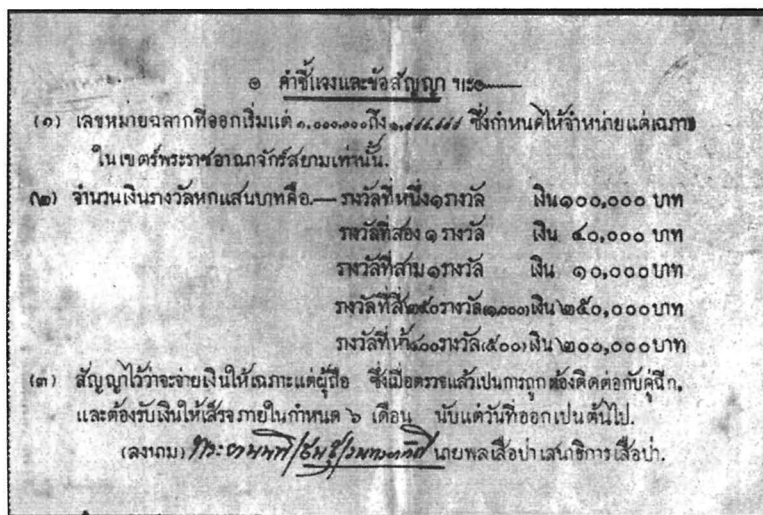 ๏ คำชี้แจงและข้อสัญญา ฯะ๏
(๑) เลขหมายฉลากที่ออกเริ่มแต่ ๑,๐๐๐,๐๐๐ ถึง ซึ่งกำหนดให้จำหน่ายแต่เฉภาะ
ในเขตร์พระราชอาณาจักร์สยามเท่านั้น.
(๒) จำนวนเงินรางวัลหกแสนบาทคือ.— รางวัลที่หนึ่ง ๑ รางวัล เงิน ๑๐๐,๐๐๐ บาท
รางวัลที่สอง ๑ รางวัล เงิน ๔๐,๐๐๐ บาท
รางวัลที่สาม ๑ รางวัล เงิน ๑๐,๐๐๐ บาท
รางวัลที่สี่ ๒๕๐ รางวัล (๑,๐๐๐) เงิน ๒๕๐,๐๐๐ บาท
รางวัลที่ห้า ๔๐๐ รางวัล (๕๐๐) เงิน ๒๐๐,๐๐๐ บาท
(๓) สัญญาไว้ว่าจะจ่ายเงินให้เฉภาะแต่ผู้ถือ ซึ่งเมื่อตรวจแล้วเปนการถูกต้องติดต่อกับคู่ฉีก,
และต้องรับเงินให้เสร็จภายในกำหนด ๖ เดือน นับแต่วันที่ออกเปนต้นไป.
(ลงนาม) นายพลเสือป่า เสนาธิการเสือป่า.